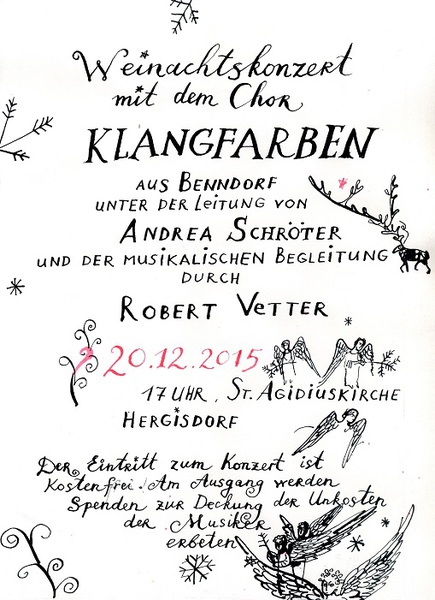 Weinachtskonzert
mit dem Chor
KLANGFARBEN
AUS BENNDORF
UNTER DER LEITUNG VON
ANDREA SCHRÖTER
UND DER MUSIKALISCHEN BEGLEITUNG
DURCH
ROBERT VETTER
20.12.2015
17 UHR, ST. AGIDIUSKIRCHE
HERGISDORF
Der Eintritt zum Konzert ist
Kostenfrei! Am Ausgang werden
Spenden zur Deckung der Unkosten
der Musiker
erbeten